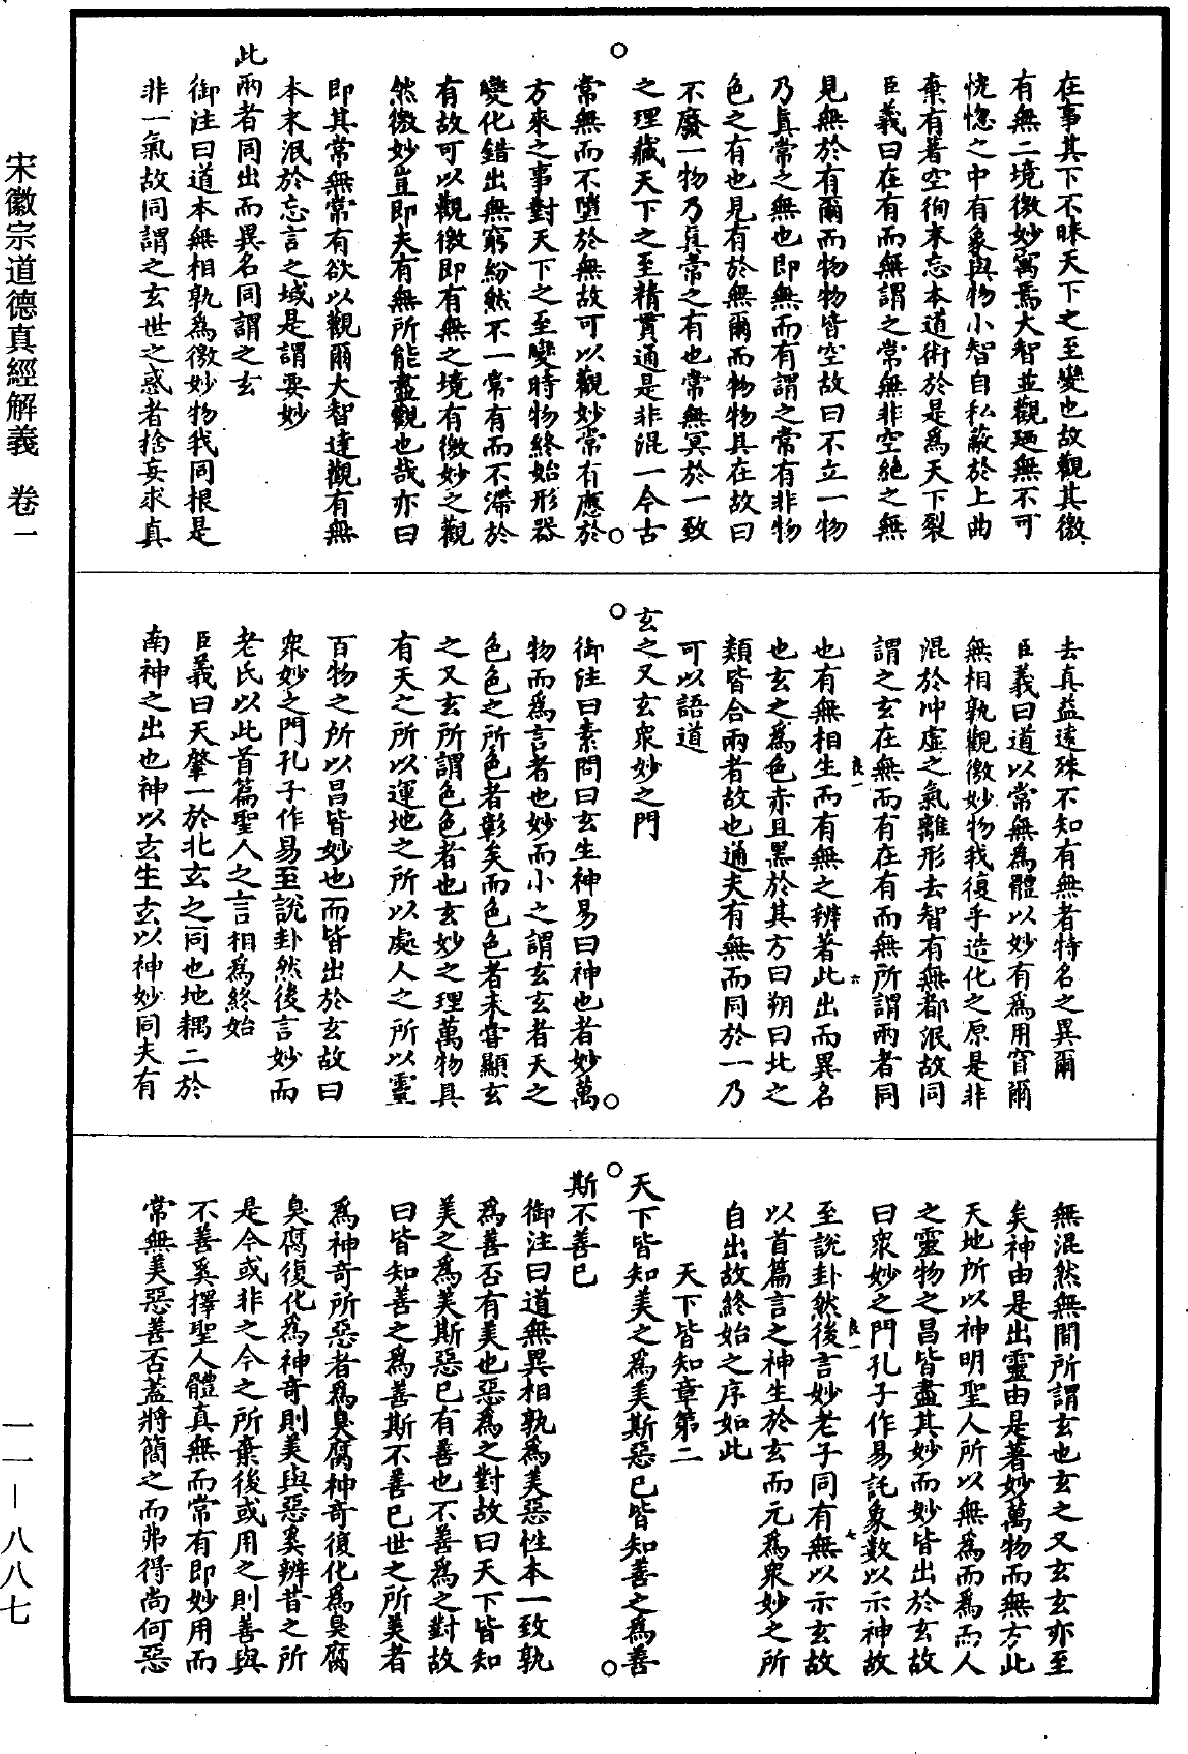 宋徽宗道德真經解義　卷一
在事其下不昧天下之至變也故觀其徼
有無二境徼妙寓焉大智並觀廼無不可
恍惚之中有象與物小智自私蔽於上曲
棄有著空徇末忘本道術於是為天下裂
臣義曰在有而無謂之常無非空絕之無
見無於有爾而物物皆空故曰不立一物
乃真常之無也即無而有謂之常有非物
色之有也見有於無爾而物物具在故曰
不廢一物乃真常之有也常無冥於一致
之理藏天下之至精貫通是非混一今古
常無而不墮於無故可以觀妙常有應於
方來之事對天下之至變時物終始形器
變化錯出無窮紛然不一常有而不滯於
有故可以觀徼即有無之境有徼妙之觀
然徼妙豈即夫有無所能盡觀也哉亦曰
即其常無常有欲以觀爾大智達觀有無
本末泯於忘言之域是謂要妙
此兩者同出而異名同謂之玄
御注曰道本無相孰為徼妙物我同根是
非一氣故同謂之玄世之惑者捨妄求真
去真益遠殊不知有無者特名之異爾
臣義曰道以常無為體以妙有為用窅爾
無相孰觀徼妙物我復乎造化之原是非
混於沖虛之氣離形去智有無都泯故同
謂之玄在無而有在有而無所謂兩者同
也有無相生而有無之辨著此出而異名
也玄之為色赤且黑於其方曰朔曰北之
類皆合兩者故也通夫有無而同於一乃
可以語道
玄之又玄衆妙之門
御注曰素問曰玄生神易曰神也者妙萬
物而為言者也妙而小之謂玄玄者天之
色色之所色者彰矣而色色者未嘗顯玄
之又玄所謂色色者也玄妙之理萬物具
有天之所以運地之所以處人之所以靈
百物之所以昌皆妙也而皆出於玄故曰
衆妙之門孔子作易至說卦然後言妙而
老氏以此首篇聖人之言相為終始
臣義曰天肇一於北玄之同也地耦二於
南神之出也神以玄生玄以神妙同夫有
無混然無間所謂玄也玄之又玄玄亦至
矣神由是出靈由是著妙萬物而無方此
天地所以神明聖人所以無為而為而人
之靈物之昌皆盡其妙而妙皆出於玄故
曰衆妙之門孔子作易託象數以示神故
至說卦然後言妙老子同有無以示玄故
以首篇言之神生於玄而元為衆妙之所
自出故終始之序如此
天下皆知章第二
天下皆知美之為美斯惡已皆知善之為善
斯不善已
御注曰道無異相孰為美惡性本一致孰
為善否有美也惡為之對故曰天下皆知
美之為美斯惡已有善也不善為之對故
曰皆知善之為善斯不善已世之所美者
為神奇所惡者為臭腐神奇復化為臭腐
臭腐復化為神奇則美與惡奚辨昔之所
是今或非之今之所棄後或用之則善與
不善奚擇聖人體真無而常有即妙用而
常無美惡善否蓋將簡之而弗得尚何惡
一一—八八七